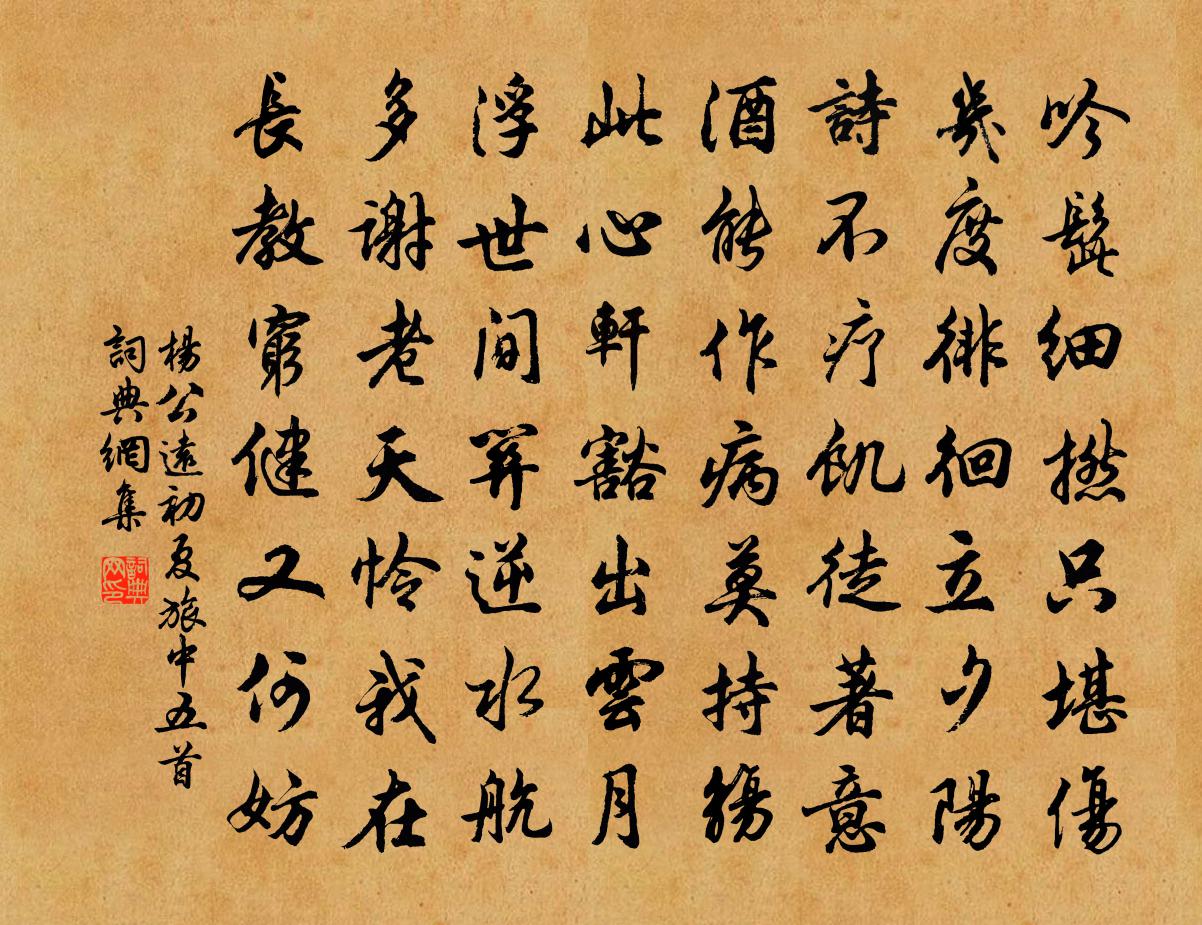 吟髭細撚只堪傷
幾度徘徊立夕陽
詩不疗飢徒著意
酒能作病莫持觴
此心軒豁出雲月
浮世間關逆水航
多謝老天怜我在
長教窮健又何妨
楊公遠初夏旅中五首
詞典網集
詞典网印